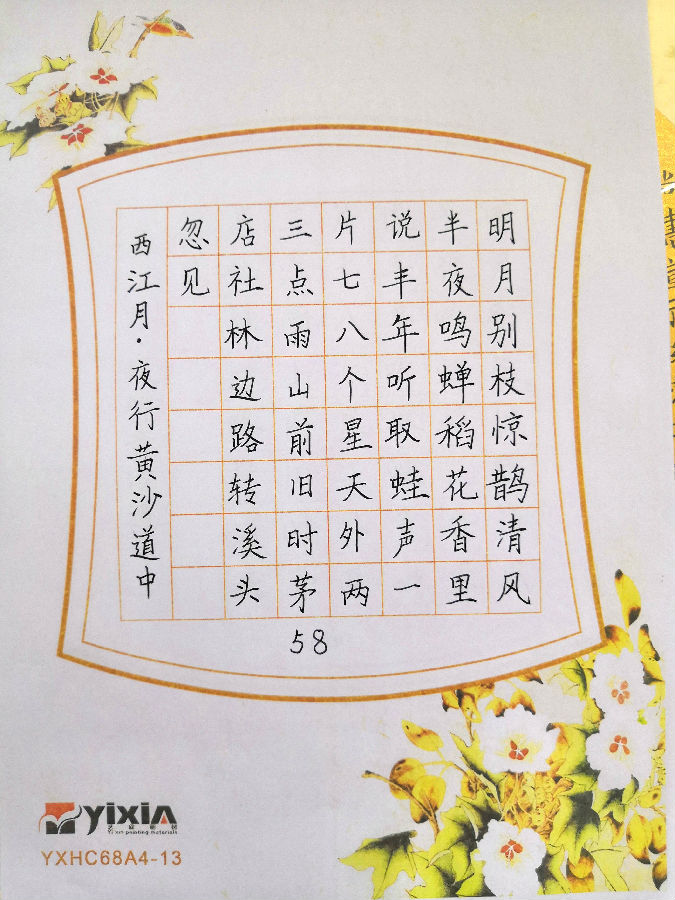 明月别枝惊鹊清风
半夜鸣蝉稻花香里
说丰年听取蛙声一
片七八个星天外两
三点雨山前旧时茅
店社林边路转溪头
忽见
西江月·夜行黄沙道中
58
yixin
Yi xin painting materials
YXHC68A4-13